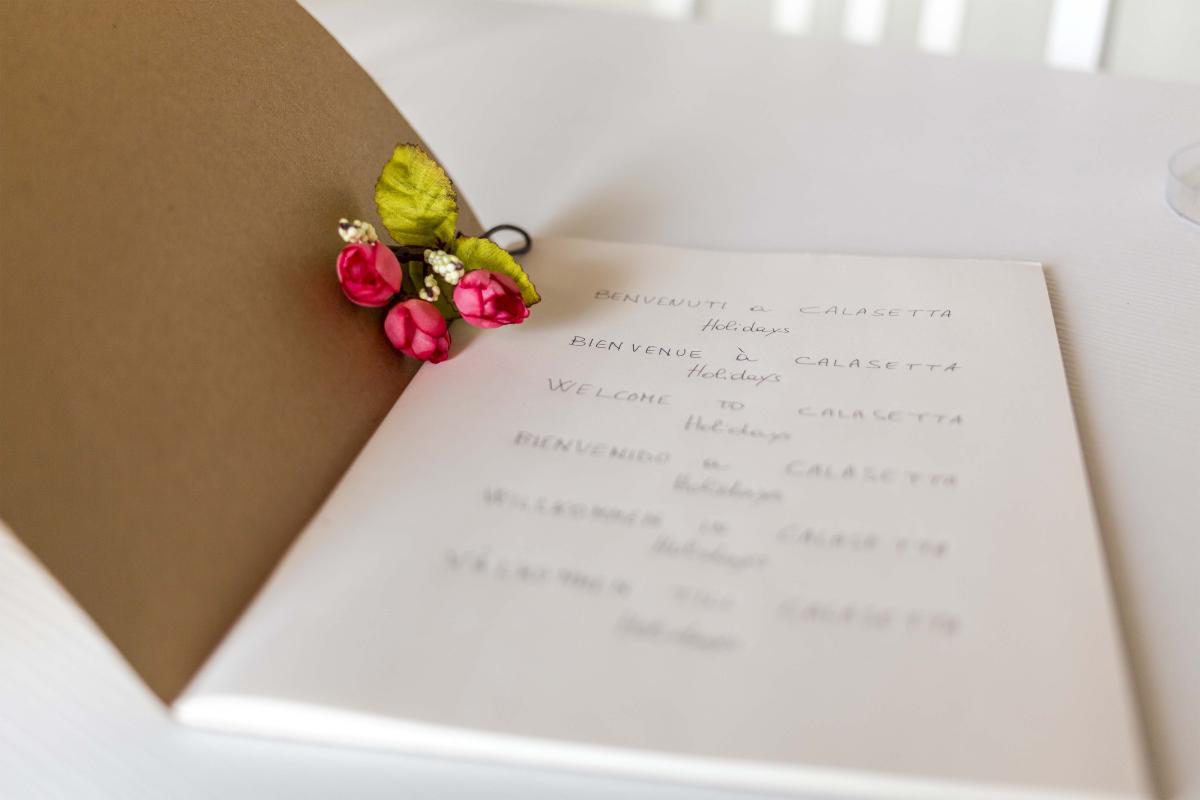 BENVENUTI a CALASETTA
Holidays
BIENVENUE à CALASETTA
Holidays
WELCOME TO CALASETTA
Holidays
BIENVENIDO a CALASETTA
Holidays
WILLKOMMEN IN CALASETTA
Holidays
VÄLKOMMEN TILL CALASETTA
Holidays